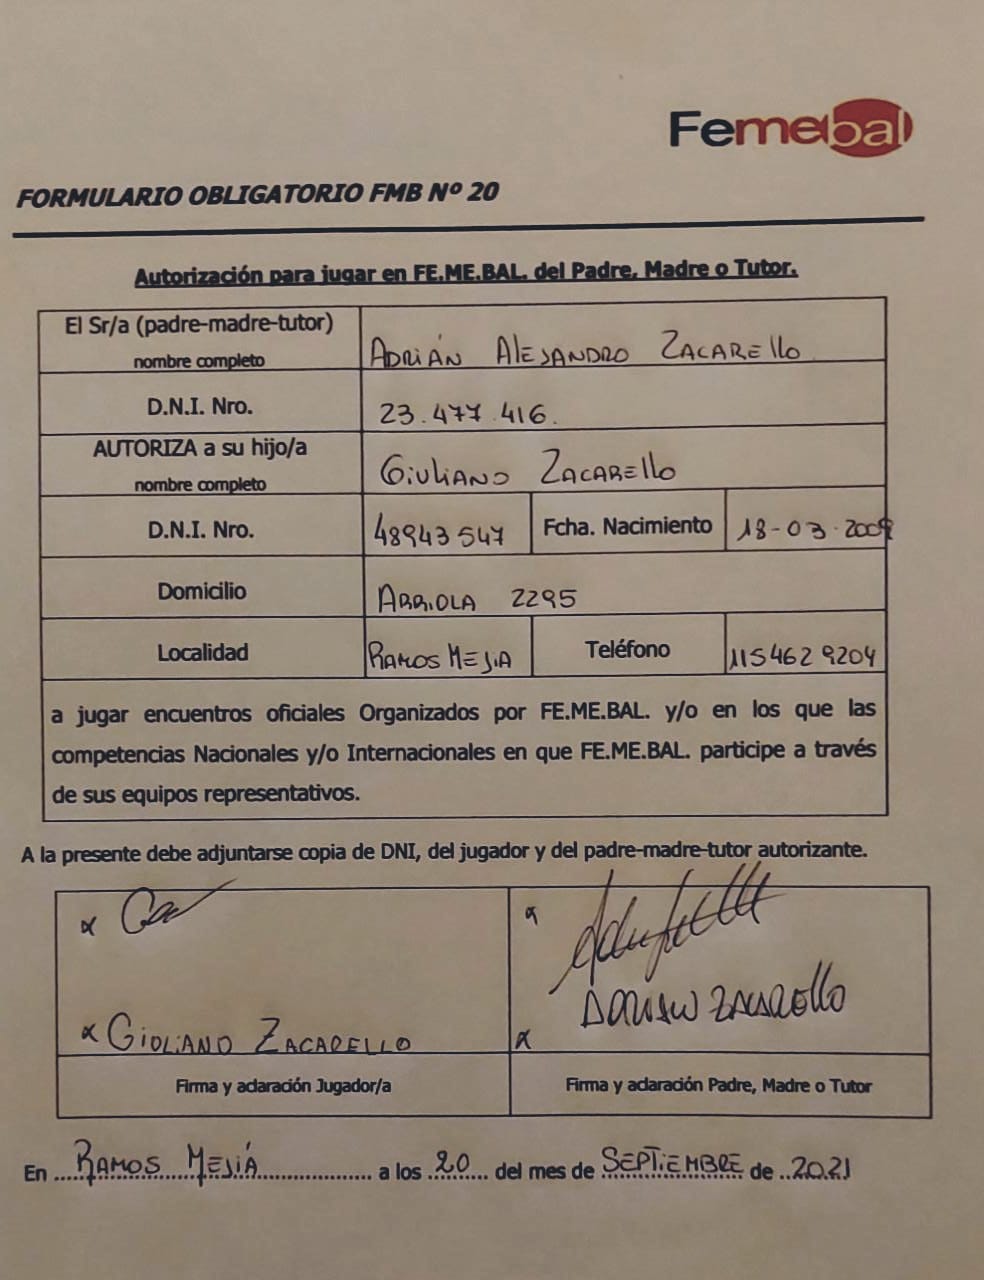 Femebal
FORMULARIO OBLIGATORIO FMB Nº 20
Autorización para jugar en FE.ME.BAL. del Padre, Madre o Tutor.
El Sr/a (padre-madre-tutor)
nombre completo
ADRIÁN ALEJANDRO ZACARELLO
D.N.I. Nro.
23.477.416.
AUTORIZA a su hijo/a
nombre completo
GIULIANO ZACARELLO
D.N.I. Nro.
48943547
Fcha. Nacimiento
18-03-2009
Domicilio
ARRIOLA 2295
Localidad
RAMOS MEJIA
Teléfono
1154629204
a jugar encuentros oficiales Organizados por FE.ME.BAL. y/o en los que las
competencias Nacionales y/o Internacionales en que FE.ME.BAL. participe a través
de sus equipos representativos.
A la presente debe adjuntarse copia de DNI, del jugador y del padre-madre-tutor autorizante.
GIULIANO ZACARELLO
ADRIAN ZACARELLO
Firma y aclaración Jugador/a
Firma y aclaración Padre, Madre o Tutor
En RAMOS MEJIÁ a los 20 del mes de SEPTIEMBRE de 2021